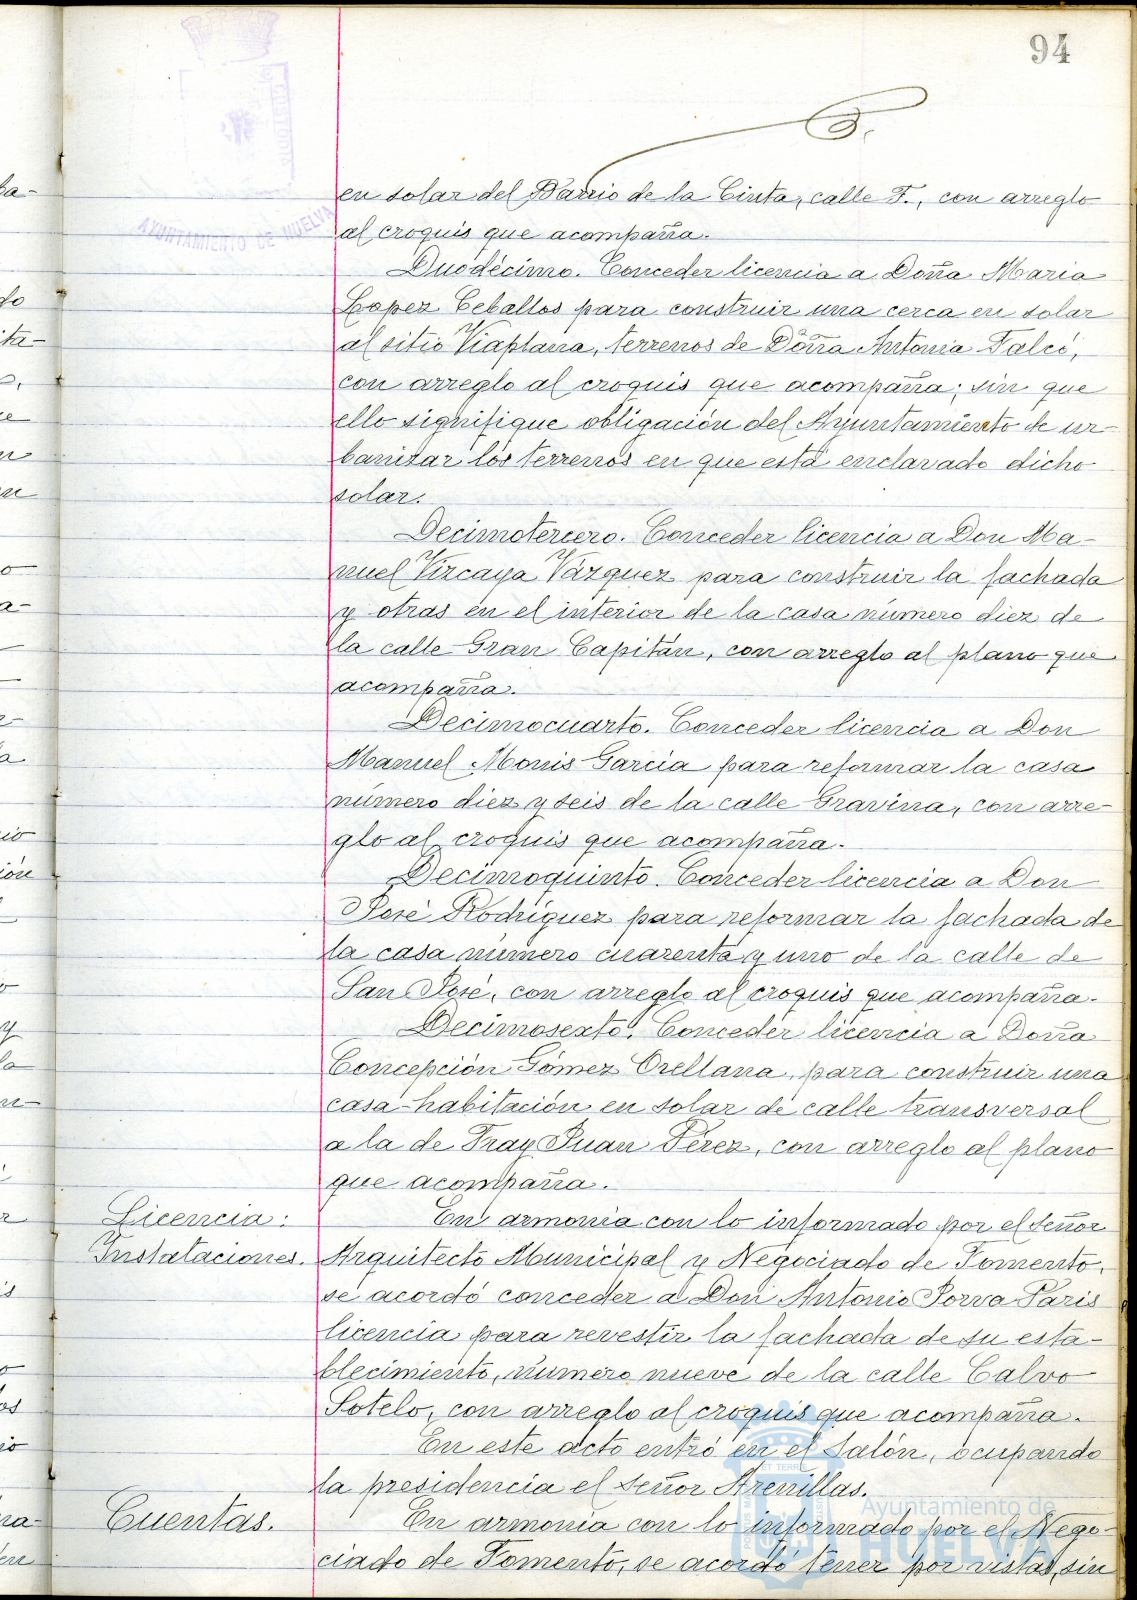 94
AYUNTAMIENTO DE HUELVA
en solar del Barrio de la Cinta, calle F., con arreglo
al croquis que acompaña.
Duodécimo. Conceder licencia a Doña Maria
Lopez Ceballos para construir una cerca en solar
al sitio Viaplana, terrenos de Doña Antonia Falcó,
con arreglo al croquis que acompaña; sin que
ello signifique obligación del Ayuntamiento de ur-
banizar los terrenos en que está enclavado dicho
solar.
Decimotercero. Conceder licencia a Don Ma-
nuel Vizcaya Vázquez para construir la fachada
y otras en el interior de la casa número diez de
la calle Gran Capitán, con arreglo al plano que
acompaña.
Decimocuarto. Conceder licencia a Don
Manuel Monis Garcia para reformar la casa
número diez y seis de la calle Gravina, con arre-
glo al croquis que acompaña.
Decimoquinto. Conceder licencia a Don
José Rodríguez para reformar la fachada de
la casa número cuarenta y uno de la calle de
San José, con arreglo al croquis que acompaña.
Decimosexto. Conceder licencia a Doña
Concepción Gómez Orellana, para construir una
casa-habitación en solar de calle transversal
a la de Fray Juan Pérez, con arreglo al plano
que acompaña.
Licencia: En armonia con lo informado por el señor
Instalaciones. Arquitecto Municipal y Negociado de Fomento,
se acordó conceder a Don Antonio Porva Paris
licencia para revestir la fachada de su esta-
blecimiento, número nueve de la calle Calvo
Sotelo, con arreglo al croquis que acompaña.
En este acto entró en el Salón, ocupando
la presidencia el señor Arenillas.
Cuentas. En armonia con lo informado por el Nego-
ciado de Fomento, se acordó tener por vistas, sin
Ayuntamiento de
HUELVA